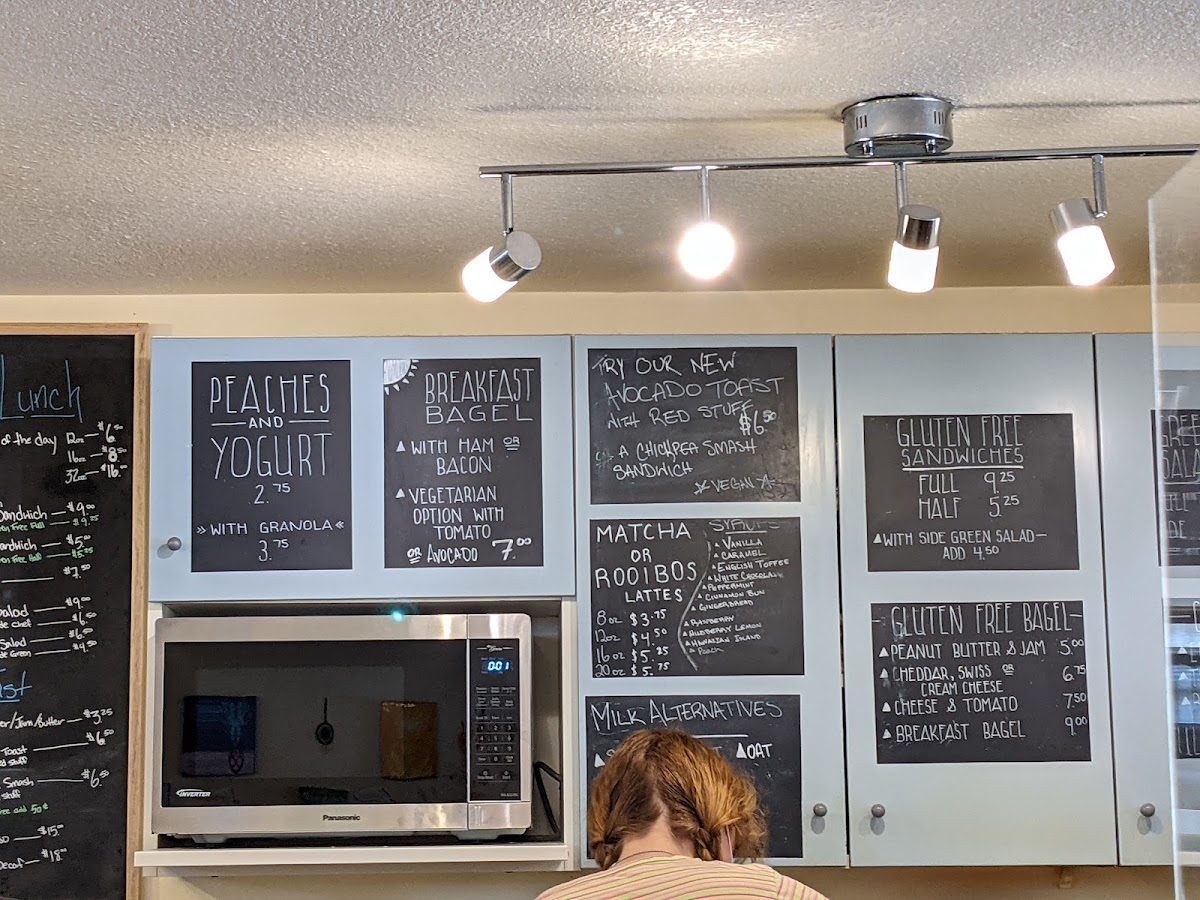 Lunch
of the day 12oz — $6.50
16oz — $8.50
32oz — $16.00
Sandwich — $9.00
$9.25
Sandwich — $5.00
$5.25
$7.50
Salad — $9.00
$6.50
Salad — $6.50
$4.50
/Jam/Butter — $3.25
Toast — $6.50
Smash — $6.50
free add 50¢
$15.00
Decaf — $18.00
PEACHES
AND
YOGURT
2.75
» WITH GRANOLA «
3.75
BREAKFAST
BAGEL
WITH HAM OR
BACON
VEGETARIAN
OPTION WITH
TOMATO
OR AVOCADO 7.00
TRY OUR NEW
AVOCADO TOAST
WITH RED STUFF
$6.50
A CHICKPEA SMASH
SANDWICH
VEGAN
MATCHA
OR
ROOIBOS
LATTES
8oz $3.75
12oz $4.50
16oz $5.25
20oz $5.75
SYRUPS
VANILLA
CARAMEL
ENGLISH TOFFEE
WHITE CHOCOLATE
PEPPERMINT
CINNAMON BUN
GINGERBREAD
RASPBERRY
HAWAIIAN ISLAND
PEACH
MILK ALTERNATIVES
OAT
GLUTEN FREE
SANDWICHES
FULL 9.25
HALF 5.25
WITH SIDE GREEN SALAD—
ADD 4.50
GLUTEN FREE BAGEL
PEANUT BUTTER & JAM 5.00
CHEDDAR, SWISS OR 6.75
CREAM CHEESE
CHEESE & TOMATO 7.50
BREAKFAST BAGEL 9.00
INVERTER
Panasonic
0:01